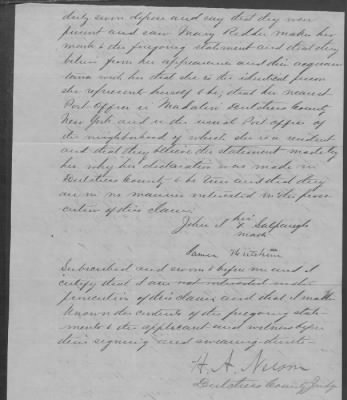 duly sworn depose and say that they were
present and saw Mary Redder make her
mark to the foregoing statement and that they
believe from her appearance and their acquain
tance with her that she is the identical person
she represents herself to be; that her nearest
Post Office is Madalin Dutchess County
New York and is the usual Post office of
the neighborhood of which she is a resident
and that they believe the statement made by
her why his declaration was made in
Dutchess County to be true and that they
are in no manner interested in the prose
cution of this claim
his
John A X Salpaugh
mark
James
Subscribed and sworn to before me and I
certify that I am not interested in the
prosecution of this claim and that I made
known the contents of the foregoing state-
ments to the applicant and witnesses before
their signing and swearing thereto
H. A. Nelson
Dutchess County Judge